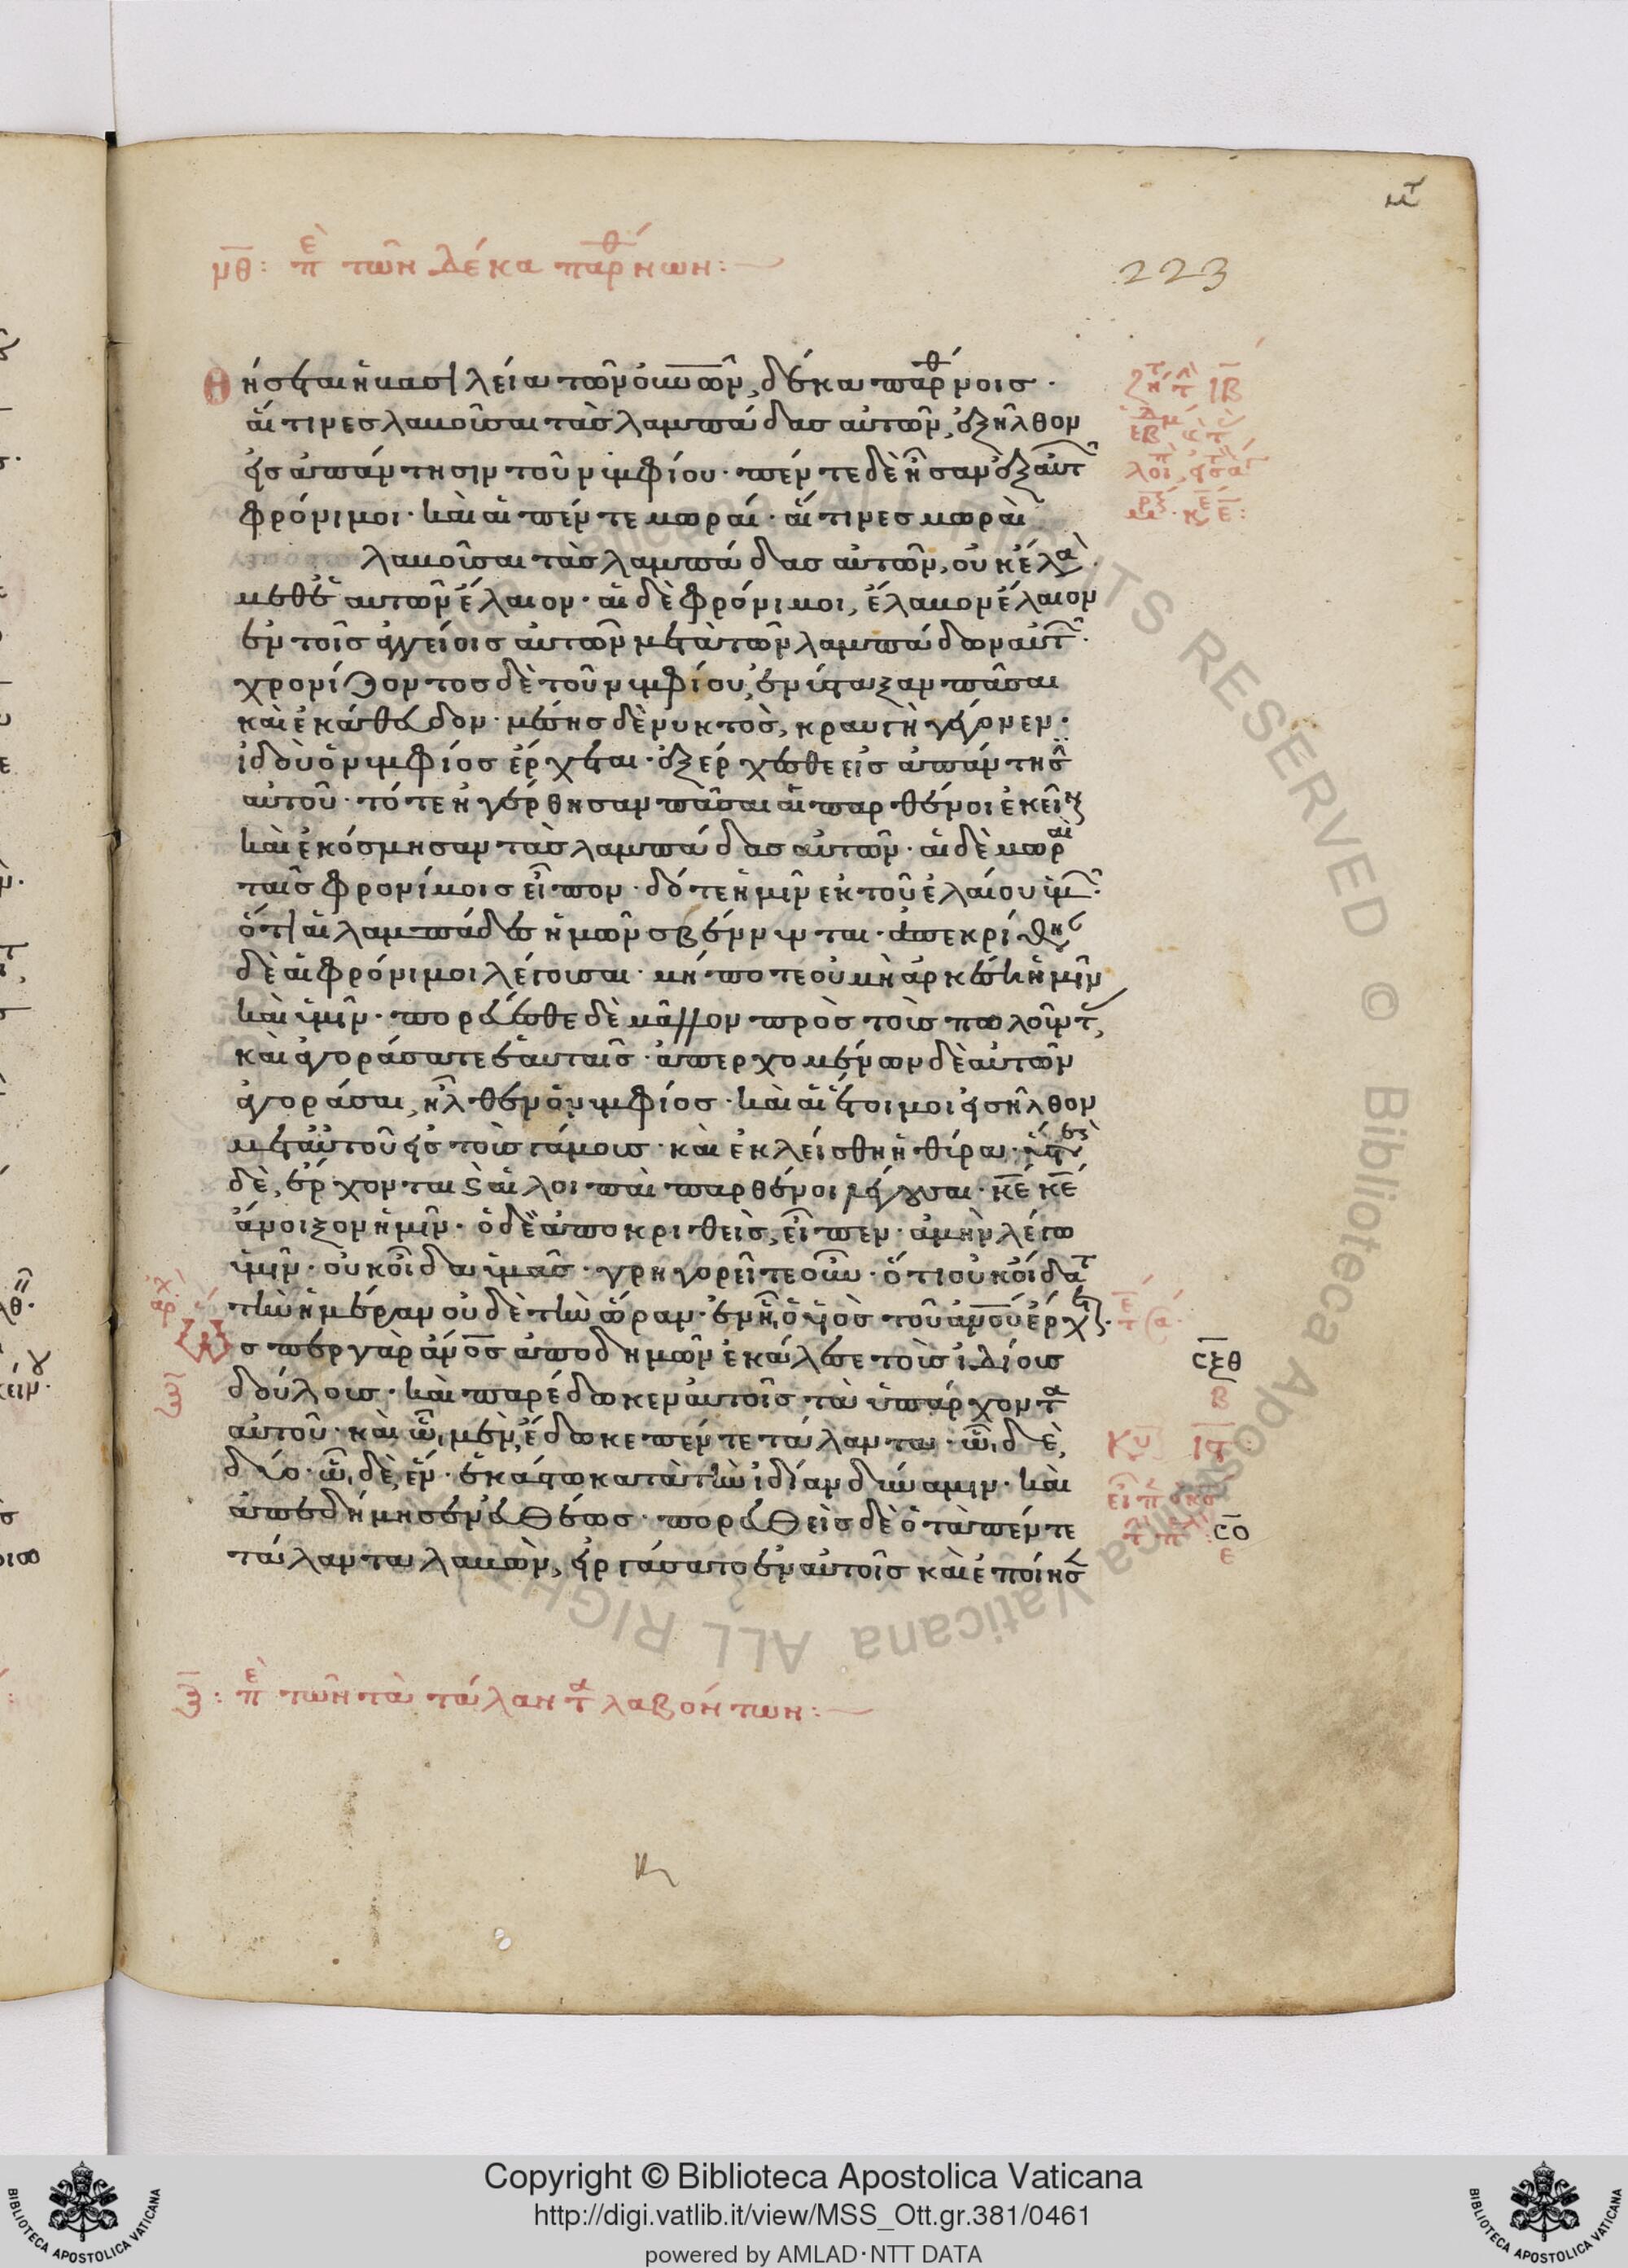 μτ
μθ: π̅ὲ τῶν δέκα παρθ́νων:
223
θήσεται ἡ βασιλεία τῶν οὐνῶν, δέκα παρθ́νοις·
αἵτινες λαβοῦσαι τὰς λαμπάδας αὐτῶν, ἐξῆλθον
εἰς ἀπάντησιν τοῦ νυμφίου· πέντε δὲ ἦσαν ἐξ αὐτ
φρόνιμοι· καὶ αἱ πέντε μωραί· αἵτινες μωραὶ
λαβοῦσαι τὰς λαμπάδας αὐτῶν, οὐκ ἔλα
μεθ' ἑαυτῶν ἔλαιον· αἱ δὲ φρόνιμοι, ἔλαβον ἔλαιον
ἐν τοῖς ἀγγείοις αὐτῶν μετὰ τῶν λαμπάδων αὐτ·
χρονίζοντος δὲ τοῦ νυμφίου, ἐνύσταξαν πᾶσαι
καὶ ἐκάθευδον· μέσης δὲ νυκτὸς, κραυγὴ γέγονεν·
ἰδοὺ ὁ νυμφίος ἔρχεται· ἐξέρχεσθε εἰς ἀπάντησ
αὐτοῦ· τότε ἠγέρθησαν πᾶσαι αἱ παρθένοι ἐκεῖν
καὶ ἐκόσμησαν τὰς λαμπάδας αὐτῶν· αἱ δὲ μωραὶ
ταῖς φρονίμοις εἶπον· δότε ἡμῖν ἐκ τοῦ ἐλαίου ὑμ·
ὅτι αἱ λαμπάδες ἡμῶν σβέννυνται· ἀπεκρίθησ
δὲ αἱ φρόνιμοι λέγουσαι· μήποτε οὐ μὴ ἀρκέσει ἡμῖν
καὶ ὑμῖν· πορεύεσθε δὲ μᾶλλον πρὸς τοὺς πωλοῦντ,
καὶ ἀγοράσατε ἑαυταῖς· ἀπερχομένων δὲ αὐτῶν
ἀγοράσαι, ἦλθεν ὁ νυμφίος· καὶ αἱ ἕτοιμοι εἰσῆλθον
μετ' αὐτοῦ εἰς τοὺς γάμους· καὶ ἐκλείσθη ἡ θύρα· ὕστε
δὲ, ἔρχονται καὶ αἱ λοιπαὶ παρθένοι λέγουσαι· κ̅ε̅ κ̅ε̅
ἄνοιξον ἡμῖν· ὁ δὲ ἀποκριθεὶς, εἶπεν· ἀμὴν λέγω
ὑμῖν· οὐκ οἶδα ὑμᾶς· γρηγορεῖτε οὖν· ὅτι οὐκ οἴδατ
τὴν ἡμέραν οὐδὲ τὴν ὥραν· ἐν ᾗ, ὁ υἱὸς τοῦ ἀνου ἔρχ.
Ὥσπερ γὰρ ἀνος ἀποδημῶν ἐκάλεσε τοὺς ἰδίους
δούλους· καὶ παρέδωκεν αὐτοῖς τὰ ὑπάρχοντα
αὐτοῦ· καὶ ᾧ, μὲν, ἔδωκε πέντε τάλαντα· ᾧ, δὲ,
δύο· ᾧ, δὲ, ἕν· ἑκάστω κατὰ τὴν ἰδίαν δύναμιν· καὶ
ἀπεδήμησεν εὐθέως· πορευθεὶς δὲ ὁ τὰ πέντε
τάλαντα λαβὼν, εἰργάσατο ἐν αὐτοῖς καὶ ἐποίησ
ΙΒ
ϲξθ
β
ϲο
ε
ξ: π̅ὲ τῶν τὰ τάλαντα λαβόντων:
ALL RIGHTS RESERVED © Biblioteca Apostolica Vaticana
Copyright © Biblioteca Apostolica Vaticana
http://digi.vatlib.it/view/MSS_Ott.gr.381/0461
powered by AMLAD·NTT DATA
BIBLIOTECA APOSTOLICA VATICANA
BIBLIOTECA APOSTOLICA VATICANA